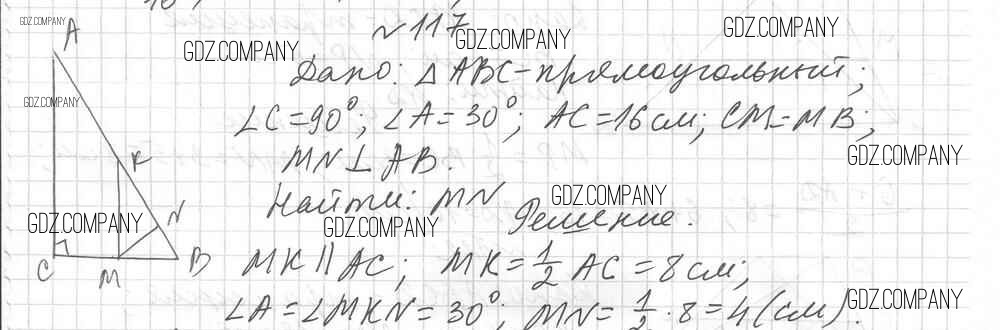 №117
Дано: △ABC - прямоугольный;
∠C=90°; ∠A=30°; AC=16 см; CM=MB;
MN⊥AB.
Найти: MN
Решение.
MK∥AC; MK=1/2 AC=8 см;
∠A=∠MKN=30°; MN=1/2·8=4 (см).
A
K
N
C
M
B
GDZ.COMPANY
GDZ.COMPANY
GDZ.COMPANY
GDZ.COMPANY
GDZ.COMPANY
GDZ.COMPANY
GDZ.COMPANY
GDZ.COMPANY
GDZ.COMPANY
GDZ.COMPANY